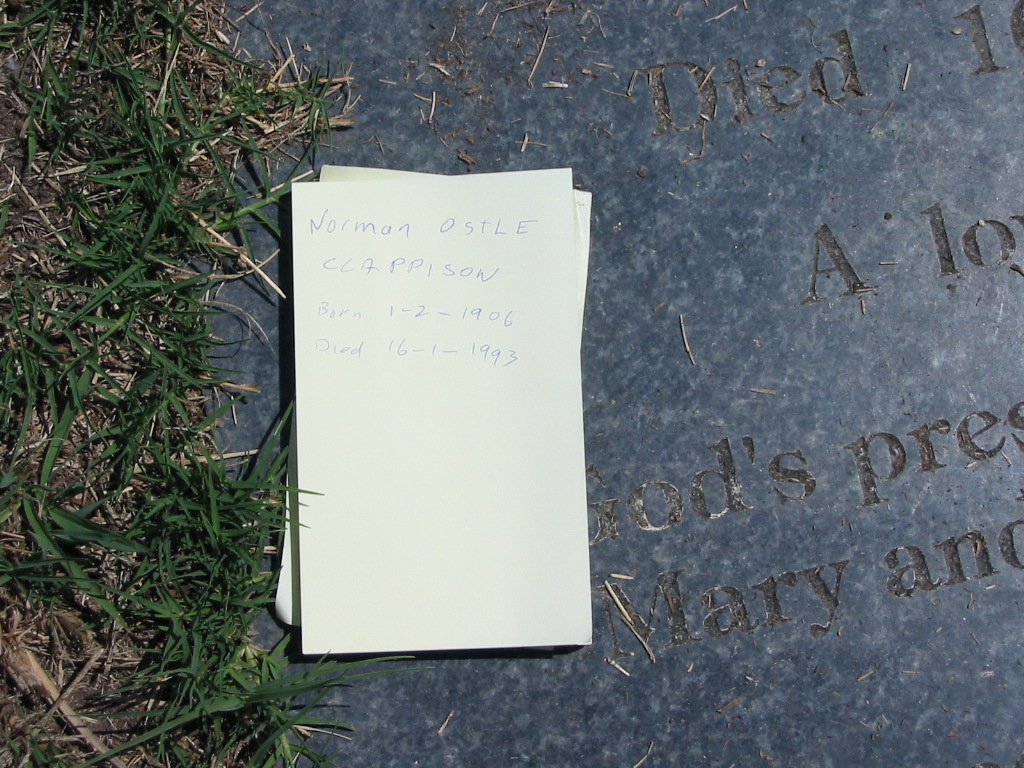 Norman OSTLE
CLAPPISON
Born 1-2-1906
Died 16-1-1993
Died 16
A lo
God's pres
Mary and